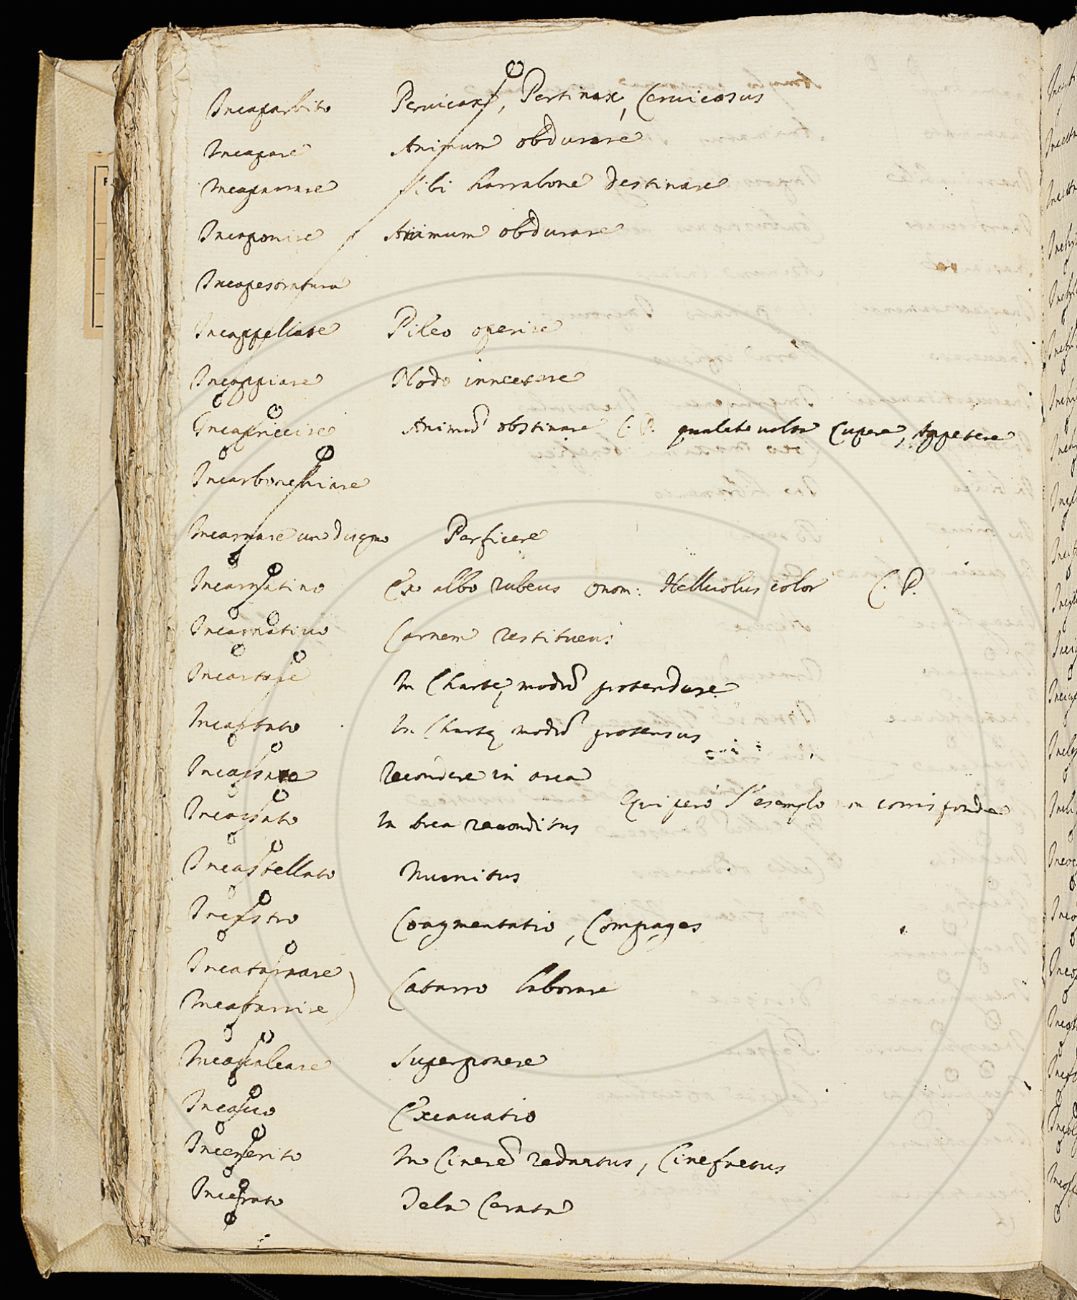 Incaparbito Pervicax, Pertinax, Cervicosus
Incapare Animum obdurare
Incaparrare Sibi harrabone destinare
Incaponire Animum obdurare
Incapestratura
Incappellare Pileo operire
Incappiare Nodo innectere
Incapriccire Animũ obstinare C. P. qualche volta Cupere, Appetere
Incarbonchiare
Incarnare un disegno Perficere
Incarnatino Ex albo rubeus onom: Helluolus color C. P.
Incarnativo Carnem restituens
Incartare In Chartę modũ protendere
Incartato In Chartę modũ protensus
Incassare Recondere in arca
Incassato In Arca reconditus Qui però l'esemplo non corrisponde
Incastellato Munitus
Incastro Coagmentatio, Compages
Incatarrare
Incatarrire Catarro laborare
Incavalcare Superponere
Incavo Excavatio
Incenerito In Cinerẽ redactus, Cinefactus
Incerato Tela Cerata